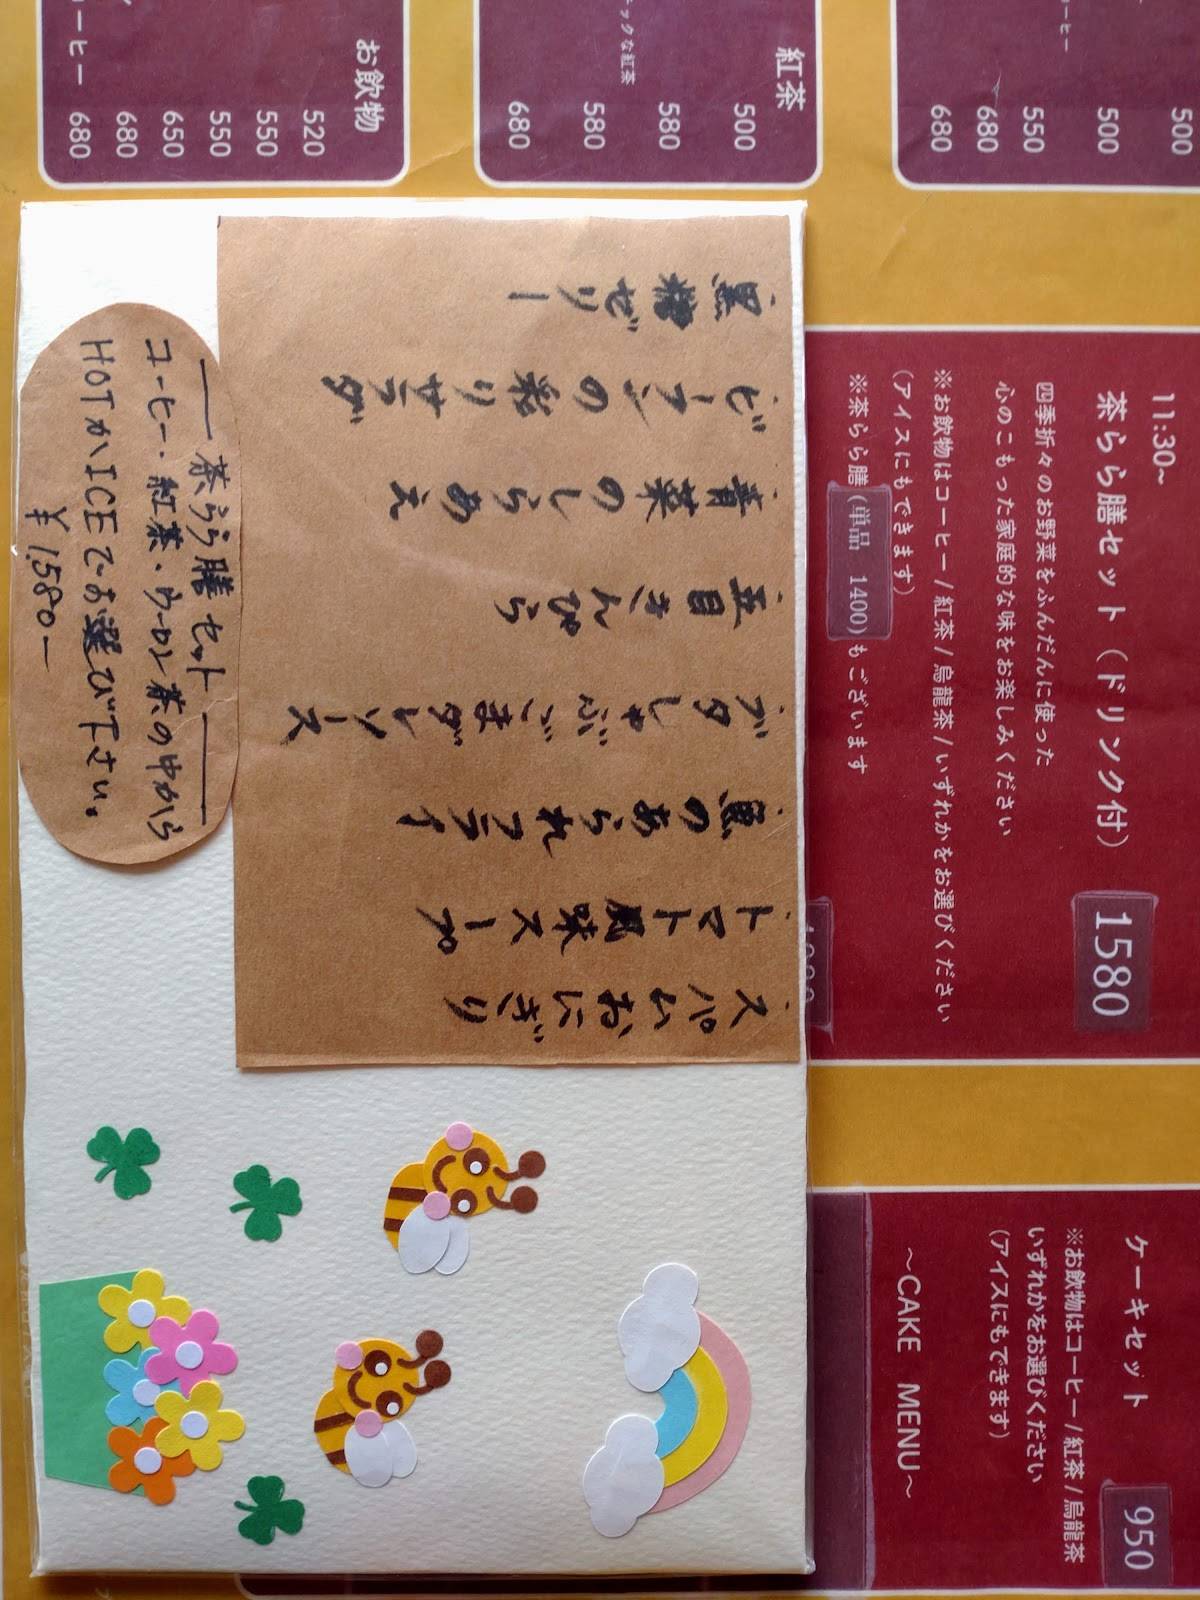 お飲物
520
550
550
650
680
ーヒー 680
紅茶
500
580
580
ックな紅茶
680
500
500
550
680
ーヒー
680
11:30~
茶らら膳セット（ドリンク付） 1580
四季折々のお野菜をふんだんに使った
心のこもった家庭的な味をお楽しみください
※お飲物はコーヒー/紅茶/烏龍茶/いずれかをお選びください
（アイスにもできます）
※茶らら膳（単品 1400）もございます
ケーキセット 950
※お飲物はコーヒー/紅茶/烏龍茶
いずれかをお選びください
（アイスにもできます）
～CAKE MENU～
黒糖ゼリー
ビーフンの彩りサラダ
青菜のしらあえ
五目きんぴら
ブタしゃぶごまダレソース
魚のあられフライ
トマト風味スープ
スパムおにぎり
茶らら膳セット
コーヒー・紅茶・ウーロン茶の中から
HOTかICEでお選び下さい。
¥1,580ー